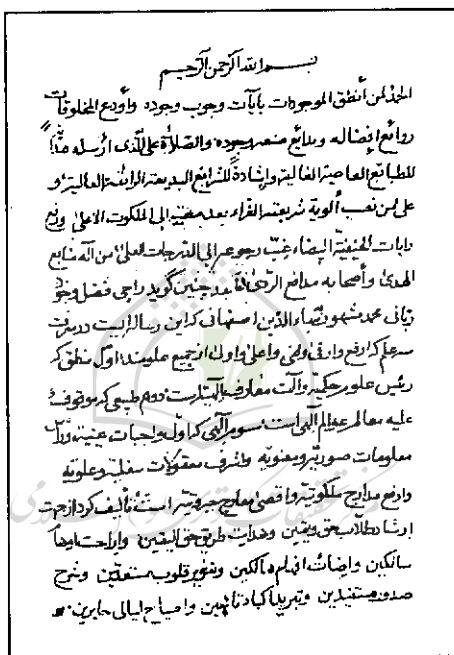 بسم الله الرحمن الرحيم
الحمد لمن أنطق الموجودات بآيات وجوب وجوده وأودع المخلوقات
روائع إفضاله وبدائع صنعه وجوده والصلاة على الذي أرسله
للطبائع العاصية الغالية وإشادة للشرائع البديعة الرائقة العالية و
على من نصب ألوية شريعته الغراء بعد مضيه إلى الملكوت الأعلى ورفع
رايات الحنيفية البيضاء غب رجوعه إلى الدرجات العلى من آله منابع
الهدى وأصحابه مدافع الردى أما بعد چنین گوید راجی فضل وجود
ربانی محمد مشهور بضیاء الدین اصفهانی که این رساله ایست در معرفت
سه علم که ارفع وارقی واسنی واعلی واولی از جمیع علومند اول منطق که
رئیس علوم حکمیه وآلت معارف الهیه است دوم طبیعی که موقوف
علیه معالم عوالم الهی است سوم الهی که اول واجبات عینیه و
معلومات صوریه ومعنویه واشرف معقولات سفلیه وعلویه
وارفع مدارج ملکوتیه واقصی معارج جبروتیه است تألیف کرد از جهت
ارشاد طلاب حق ویقین وهدایت طریق حق الیقین وازاحت اوهام
سالکین واضائت افهام هالکین وتنویر قلوب مستعدین وشرح
صدور مستفیدین وتبرید اکباد تائهین واصباح لیالی حایرین